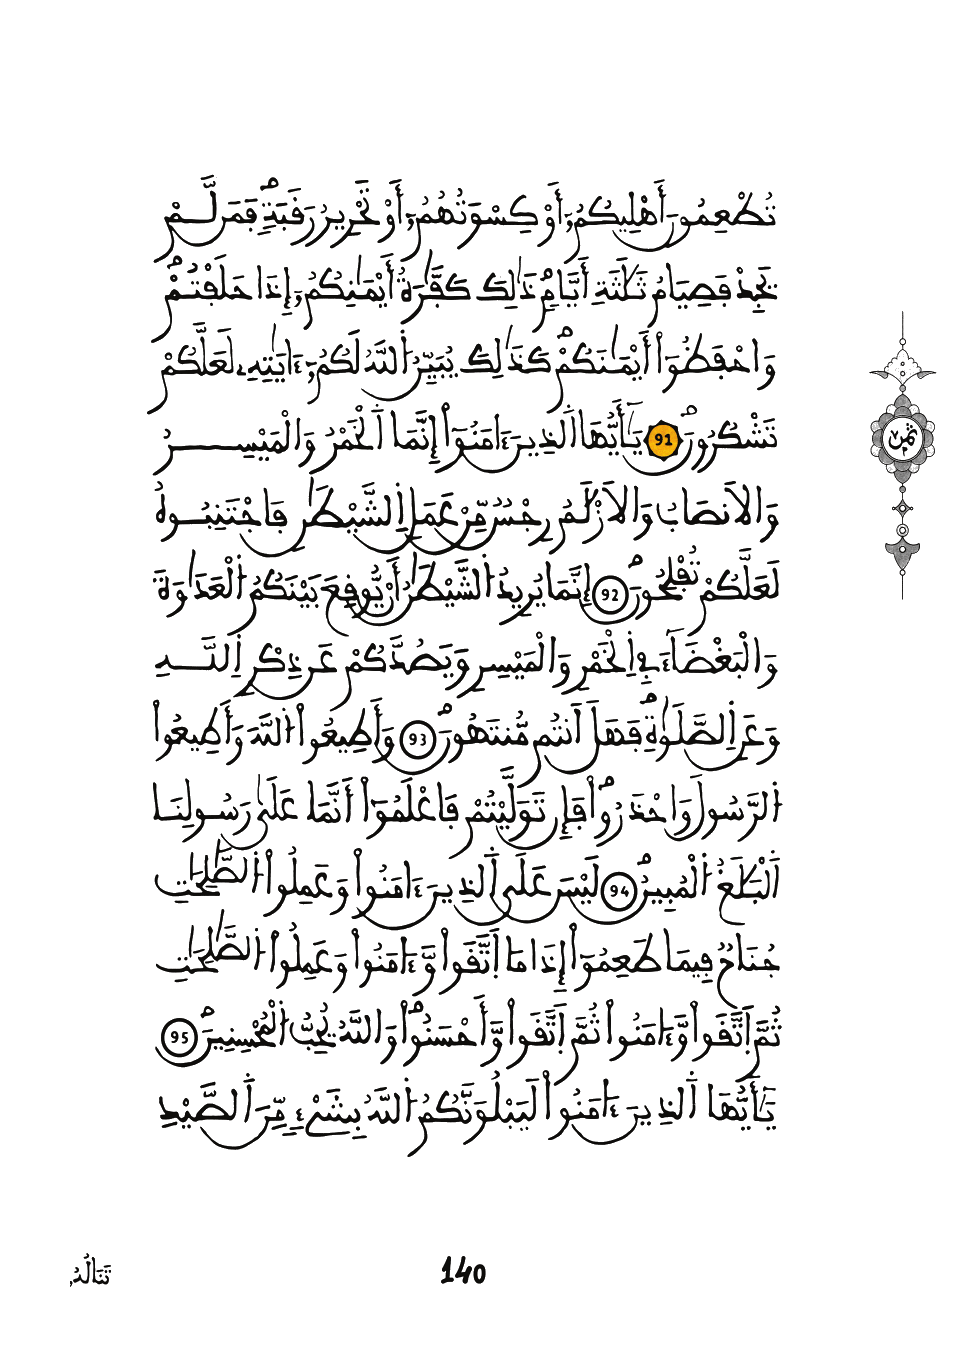 تُطْعِمُونَ أَهْلِيكُمُۥٓ أَوْ كِسْوَتُهُمُۥٓ أَوْ تَحْرِيرُ رَقَبَةٖۖ فَمَن لَّمْ
يَجِدْ فَصِيَامُ ثَلَٰثَةِ أَيَّامٖۖ ذَٰلِكَ كَفَّٰرَةُ أَيْمَٰنِكُمُۥٓ إِذَا حَلَفْتُمْۖ
وَاحْفَظُوٓاْ أَيْمَٰنَكُمْۖ كَذَٰلِكَ يُبَيِّنُ اُللَّهُ لَكُمُۥٓ ءَايَٰتِهِۦ لَعَلَّكُمْ
تَشْكُرُونَۖ 91 يَٰٓأَيُّهَا اَلذِينَ ءَامَنُوٓاْ إِنَّمَا اَلْخَمْرُ وَالْمَيْسِرُ
وَالَانصَابُ وَالَازْلَٰمُ رِجْسٌ مِّنْ عَمَلِ اِلشَّيْطَٰنِ فَاجْتَنِبُوهُ
لَعَلَّكُمْ تُفْلِحُونَۖ 92 إِنَّمَا يُرِيدُ اُلشَّيْطَٰنُ أَنْ يُّوقِعَ بَيْنَكُمُ اُلْعَدَٰوَةَ
وَالْبَغْضَآءَ فِي اِلْخَمْرِ وَالْمَيْسِرِ وَيَصُدَّكُمْ عَن ذِكْرِ اِللَّهِ
وَعَنِ اِلصَّلَوٰةِۖ فَهَلَ اَنتُم مُّنتَهُونَۖ 93 وَأَطِيعُواْ اُللَّهَ وَأَطِيعُواْ
اُلرَّسُولَ وَاحْذَرُواْۖ فَإِن تَوَلَّيْتُمْ فَاعْلَمُوٓاْ أَنَّمَا عَلَىٰ رَسُولِنَا
اَلْبَلَٰغُ اُلْمُبِينُۖ 94 لَيْسَ عَلَى اَلذِينَ ءَامَنُواْ وَعَمِلُواْ اُلصَّٰلِحَٰتِ
جُنَاحٞ فِيمَا طَعِمُوٓاْ إِذَا مَا اَتَّقَواْ وَّءَامَنُواْ وَعَمِلُواْ اُلصَّٰلِحَٰتِ
ثُمَّ اَتَّقَواْ وَّءَامَنُواْ ثُمَّ اَتَّقَواْ وَّأَحْسَنُواْۖ وَاللَّهُ يُحِبُّ اُلْمُحْسِنِينَۖ 95
يَٰٓأَيُّهَا اَلذِينَ ءَامَنُواْ لَيَبْلُوَنَّكُمُ اُللَّهُ بِشَيْءٖ مِّنَ اَلصَّيْدِ
ثمن
تَنَالُهُۥٓ
140